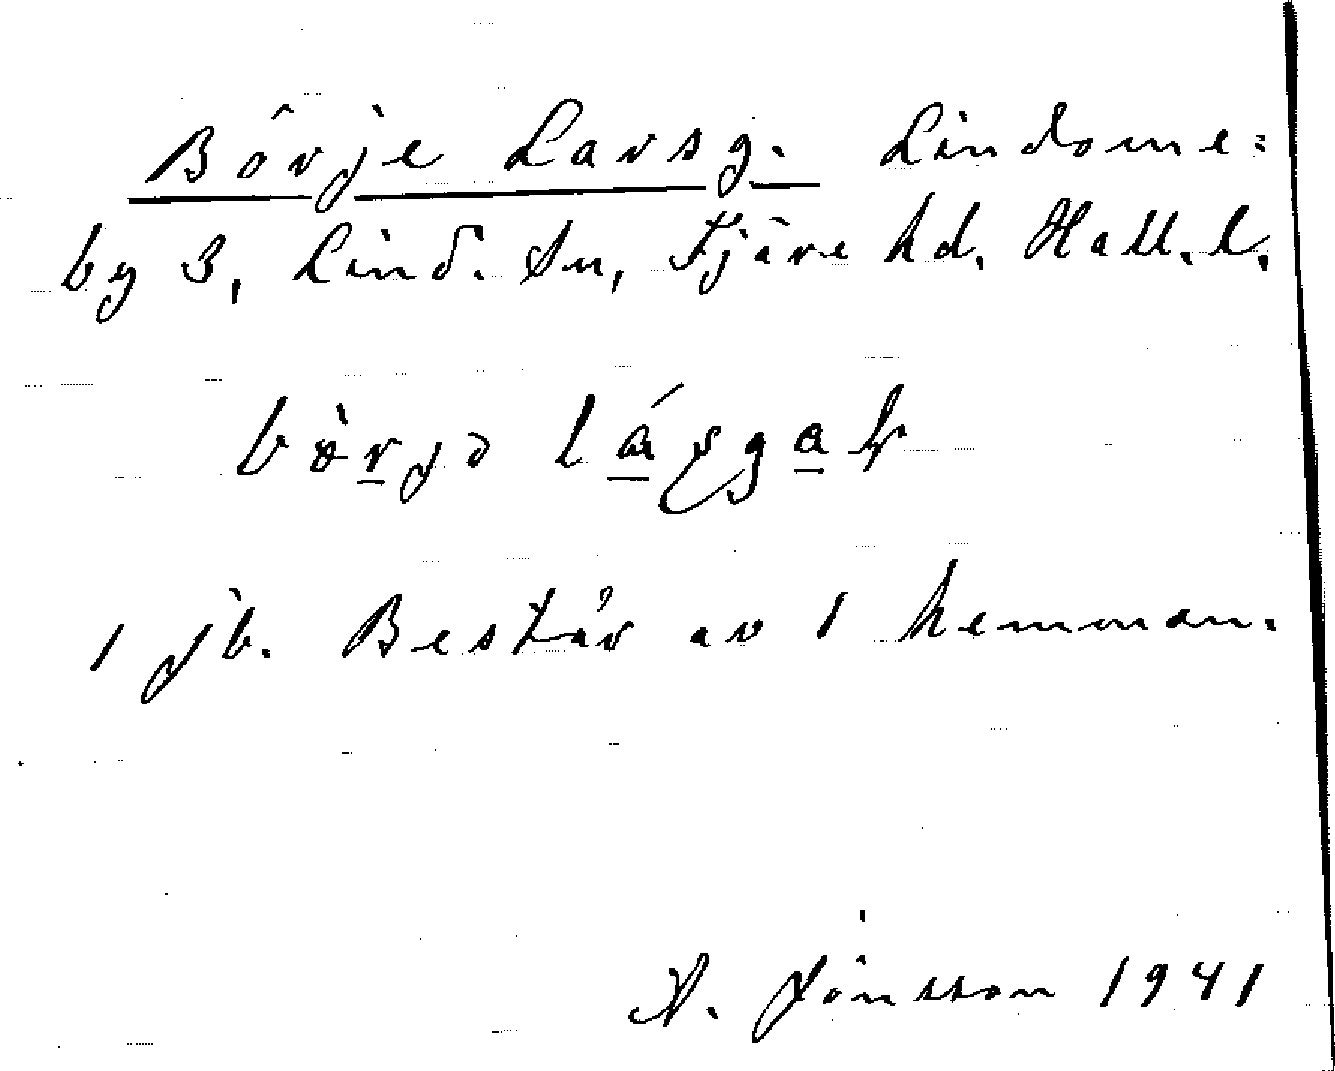 Börje Larsg. Lindome=
by 3, Lind. sn, Fjäre hd. Hall. l.
1 jb. Består av 1 hemman.
A. Jönsson 1941